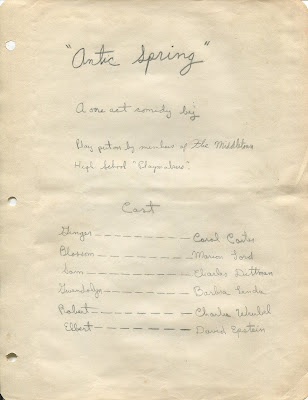 "Antic Spring"
A one act comedy by
Play put on by members of The Middletown
High School "Playmakers".
Cast
Ginger ---------- Carol Carter
Blossom ---------- Marion Ford
Sam ---------- Charles Dattman
Gwendolyn ---------- Barbra
Robert ---------- Charles
Elbert ---------- David Epstein